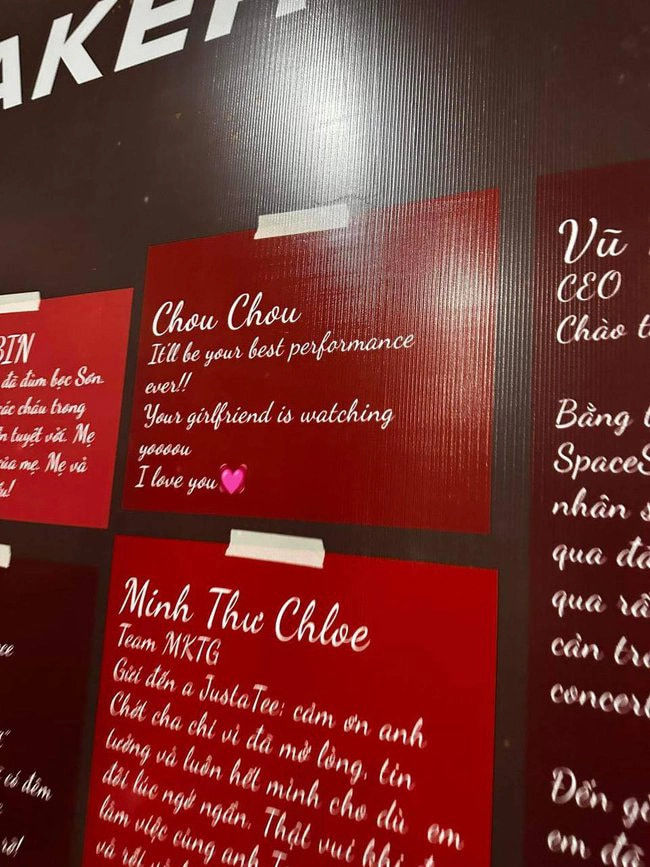 AKER
BIN
đã đùm bọc Sơn.
các cháu trong
tuyệt vời. Mẹ
của mẹ. Mẹ và
Chou Chou
It'll be your best performance
ever!!
Your girlfriend is watching
yoooou
I love you💓
Minh Thư Chloe
Team MKTG
Gửi đến a JustaTee: cảm ơn anh
Chớt cha chỉ vì đã mở lòng, tin
tưởng và luôn hết mình cho dù em
đôi lúc ngớ ngẩn. Thật vui khi
làm việc cùng anh T
và rất
có đêm
rỡ!
Vũ
CEO
Chào
Bằng
SpaceS
nhân
qua
qua
cản
concert
Đến
em